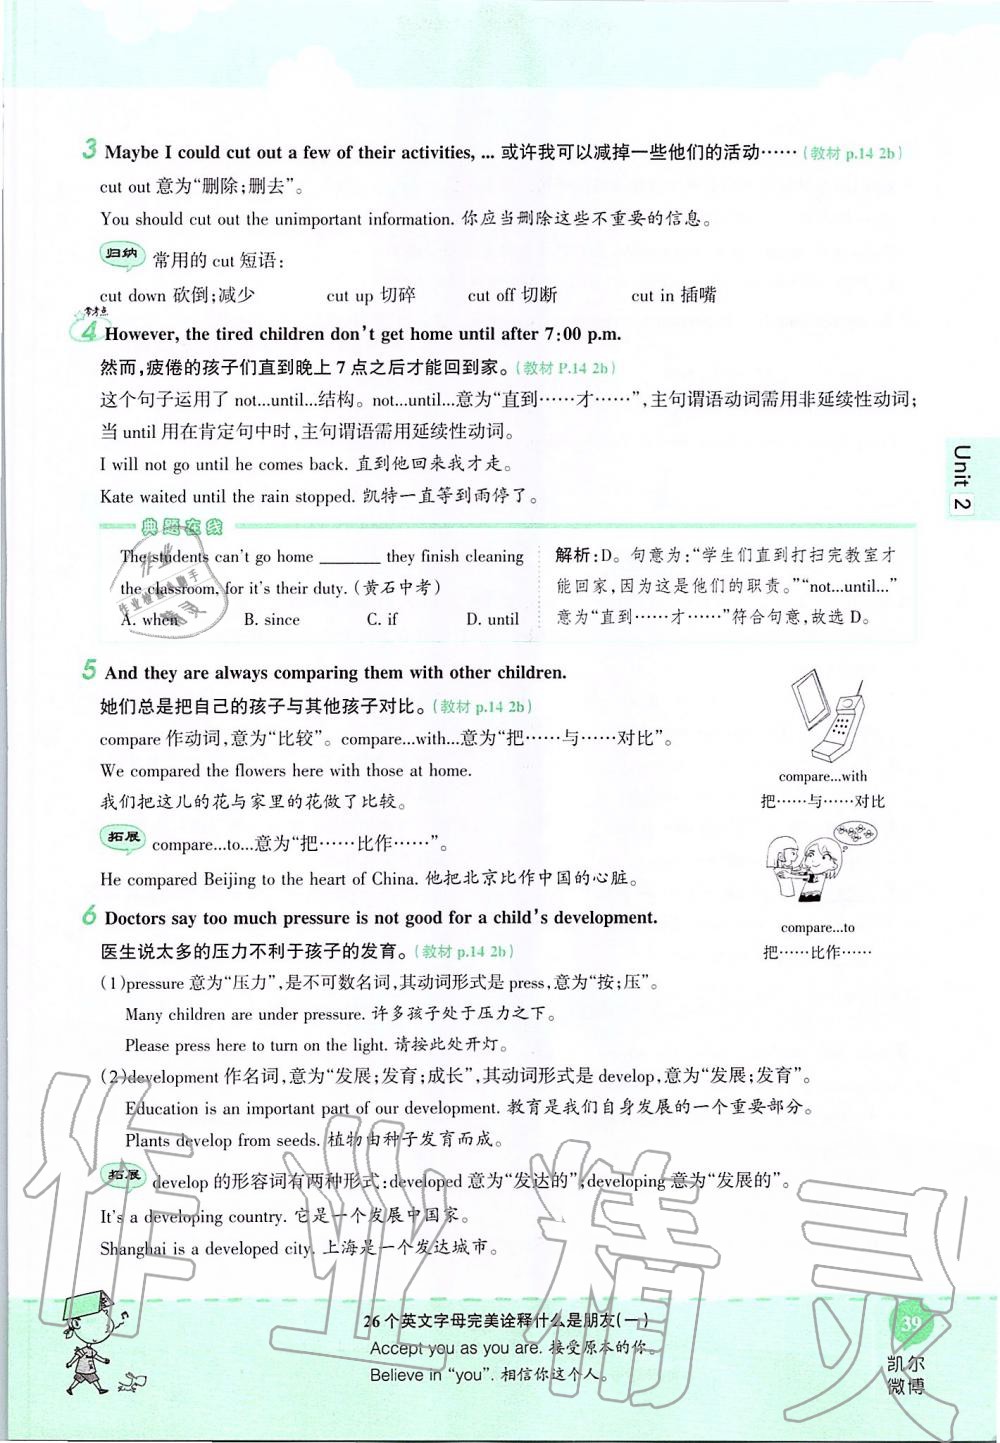 3 Maybe I could cut out a few of their activities, ... 或许我可以减掉一些他们的活动……(教材 p.14 2b)
cut out 意为“删除;删去”。
You should cut out the unimportant information. 你应当删除这些不重要的信息。
归纳 常用的 cut 短语:
cut down 砍倒;减少 cut up 切碎 cut off 切断 cut in 插嘴
常考点
4 However, the tired children don't get home until after 7:00 p.m.
然而,疲倦的孩子们直到晚上 7 点之后才能回到家。(教材 P.14 2b)
这个句子运用了 not...until...结构。not...until...意为“直到……才……”,主句谓语动词需用非延续性动词;
当 until 用在肯定句中时,主句谓语需用延续性动词。
I will not go until he comes back. 直到他回来我才走。
Kate waited until the rain stopped. 凯特一直等到雨停了。
Unit 2
典题在线
The students can't go home ________ they finish cleaning
the classroom, for it's their duty. (黄石中考)
A. when B. since C. if D. until
解析:D。句意为:“学生们直到打扫完教室才
能回家,因为这是他们的职责。”“not...until...”
意为“直到……才……”符合句意,故选 D。
5 And they are always comparing them with other children.
她们总是把自己的孩子与其他孩子对比。(教材 p.14 2b)
compare 作动词,意为“比较”。compare...with...意为“把……与……对比”。
We compared the flowers here with those at home.
我们把这儿的花与家里的花做了比较。
拓展 compare...to...意为“把……比作……”。
He compared Beijing to the heart of China. 他把北京比作中国的心脏。
compare...with
把……与……对比
compare...to
把……比作……
6 Doctors say too much pressure is not good for a child's development.
医生说太多的压力不利于孩子的发育。(教材 p.14 2b)
(1)pressure 意为“压力”,是不可数名词,其动词形式是 press,意为“按;压”。
Many children are under pressure. 许多孩子处于压力之下。
Please press here to turn on the light. 请按此处开灯。
(2)development 作名词,意为“发展;发育;成长”,其动词形式是 develop,意为“发展;发育”。
Education is an important part of our development. 教育是我们自身发展的一个重要部分。
Plants develop from seeds. 植物由种子发育而成。
拓展 develop 的形容词有两种形式:developed 意为“发达的”;developing 意为“发展的”。
It's a developing country. 它是一个发展中国家。
Shanghai is a developed city. 上海是一个发达城市。
作业精灵
26 个英文字母完美诠释什么是朋友(一)
Accept you as you are. 接受原本的你。
Believe in “you”. 相信你这个人。
39
凯尔
微博